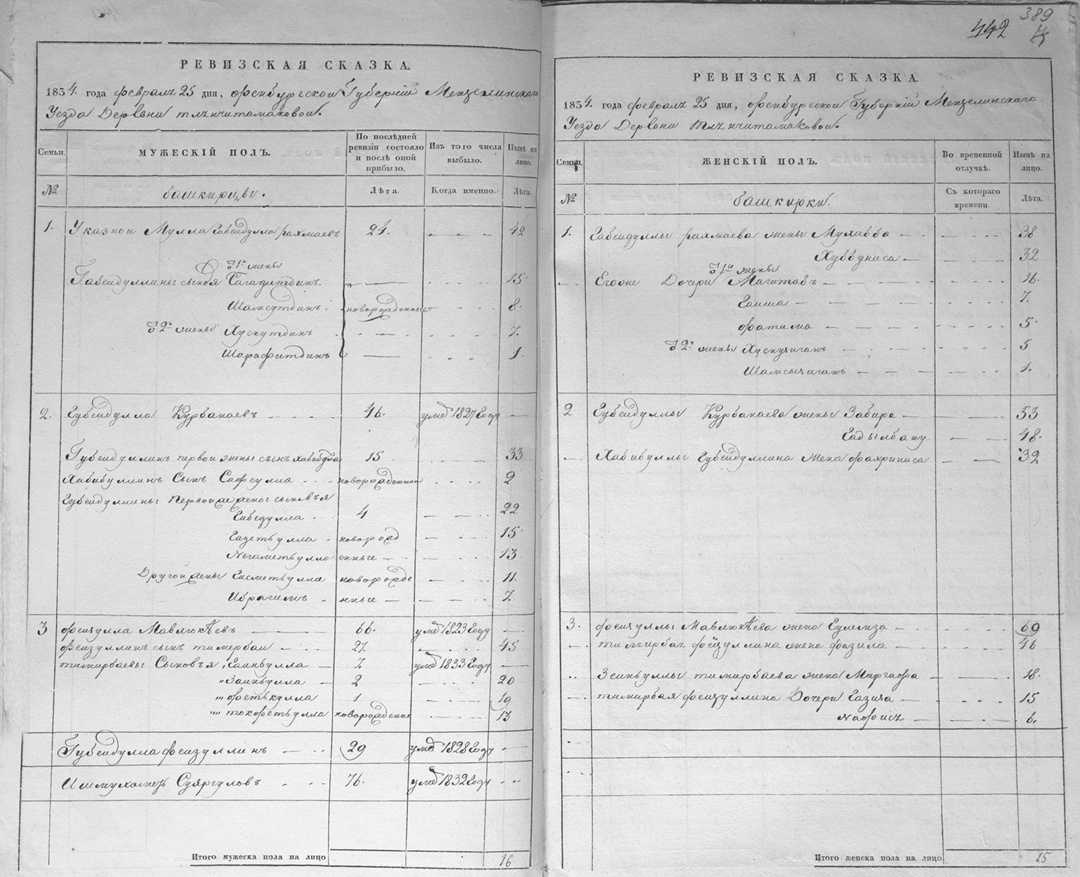 389
442
4
РЕВИЗСКАЯ СКАЗКА.
1834. года февраля 25 дня, Оренбургской Губернiи Мензелинскаго
Уезда Деревни
Семьи.
МУЖЕСКIЙ ПОЛЪ.
По послѣдней ревизiи состояло и послѣ оной прибыло.
Изъ того числа выбыло.
Нынѣ на лицо.
№
башкирцы.
Лѣта.
Когда именно.
Лѣта.
1. Указной Мулла Габейдулла рахмаевъ 24. 42
31й жены
Габейдуллины сыновья Сагадетдинъ 15
Шамсутдинъ новорожденные 8.
32й жены Хуснутдинъ 7.
Шарафитдинъ 1.
2. Губейдулла Курбанаевъ 46. умѣ 1827 Году
Губейдуллинъ первой жены сынъ Хабибулла 15 33
Хабибуллинъ Сынъ Сафеулла новорожденной 2
Губейдуллины Первой же жены сыновья
4 22
новорожд 15
Негаметьулла енные 13
Другой жены Гисметьулла новорожде 11.
Ибрагимъ нные 7.
3 Фейзулла Мавлюкѣевъ 66. умѣ 1823 Году
Фейзуллинъ сынъ тимербай 27. 45
тимирбаевы Сыновья Гайнулла 7 умѣ 1833 Году
Зайнулла 2 20
фетькулла 1 19
новорожденне 13
Губейдулла фейзуллинъ 29 умѣ 1828 Году
Ишмухаметь Суяргуловъ 76. умѣ 1832 Году
Итого мужеска пола на лицо 16
РЕВИЗСКАЯ СКАЗКА.
1834. года февраля 25 дня, Оренбургской Губернiи Мензелинскаго
Уезда Деревни
Семьи.
ЖЕНСКIЙ ПОЛЪ.
Во временной отлучкѣ.
Нынѣ на лицо.
№
башкирки.
Съ котораго времени.
Лѣта.
1. Габейдуллы рахмаева жены Мулавба 38
Хуббуниса 32
31й жены
Егоже Дочери Магитабъ 16
Гаиша 7.
Фатима 5
32й жены Хуснуджиганъ 5
Шамсыжиганъ 1.
2 Губейдуллы Курбанаева жены Забира 53
Бадылбану 48.
Хабибуллы Губейдуллина жена Фахриниса 32
3. Фейзуллы Мавлюкѣева жена Гумелиза 69
тимирбая фейзуллина жена фазила 46
Зейнуллы тимирбаева жена Маргафра 18.
тимирбая фейзуллина Дочери Газиза 15
Нафиса 6.
Итого женска пола на лицо 15